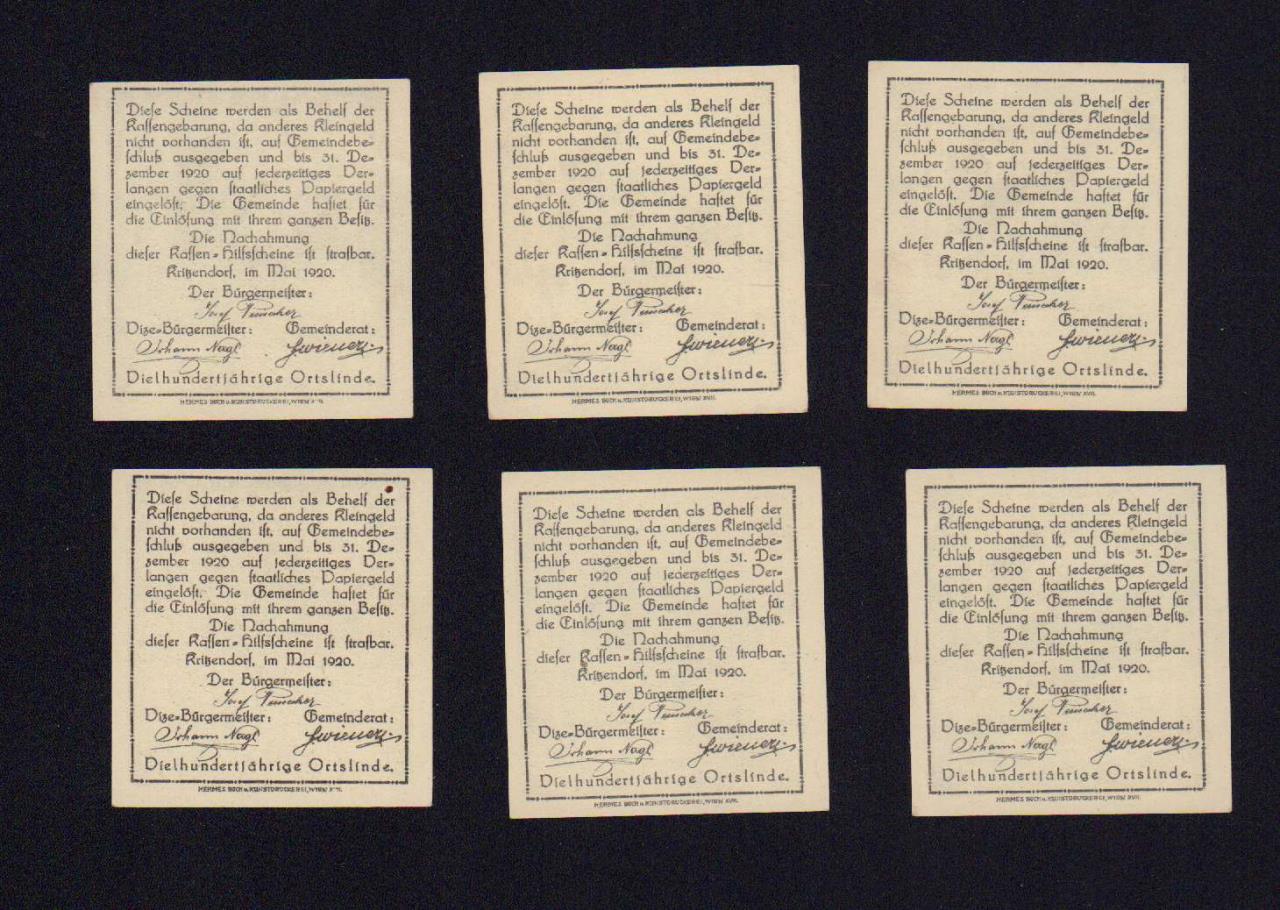 Diese Scheine werden als Behelf der
Kassengebarung, da anderes Kleingeld
nicht vorhanden ist, auf Gemeindebe-
schluß ausgegeben und bis 31. De-
zember 1920 auf jederzeitiges Ver-
langen gegen staatliches Papiergeld
eingelöst. Die Gemeinde haftet für
die Einlösung mit ihrem ganzen Besitz.
Die Nachahmung
dieser Kassen-Hilfsscheine ist strafbar.
Kritzendorf, im Mai 1920.
Der Bürgermeister:
Josef
Vize-Bürgermeister: Gemeinderat:
Johann Nagl
Vielhundertjährige Ortslinde.
HERMES BUCH u. KUNSTDRUCKEREI, WIEN XVII.
Diese Scheine werden als Behelf der
Kassengebarung, da anderes Kleingeld
nicht vorhanden ist, auf Gemeindebe-
schluß ausgegeben und bis 31. De-
zember 1920 auf jederzeitiges Ver-
langen gegen staatliches Papiergeld
eingelöst. Die Gemeinde haftet für
die Einlösung mit ihrem ganzen Besitz.
Die Nachahmung
dieser Kassen-Hilfsscheine ist strafbar.
Kritzendorf, im Mai 1920.
Der Bürgermeister:
Josef
Vize-Bürgermeister: Gemeinderat:
Johann Nagl
Vielhundertjährige Ortslinde.
HERMES BUCH u. KUNSTDRUCKEREI, WIEN XVII.
Diese Scheine werden als Behelf der
Kassengebarung, da anderes Kleingeld
nicht vorhanden ist, auf Gemeindebe-
schluß ausgegeben und bis 31. De-
zember 1920 auf jederzeitiges Ver-
langen gegen staatliches Papiergeld
eingelöst. Die Gemeinde haftet für
die Einlösung mit ihrem ganzen Besitz.
Die Nachahmung
dieser Kassen-Hilfsscheine ist strafbar.
Kritzendorf, im Mai 1920.
Der Bürgermeister:
Josef
Vize-Bürgermeister: Gemeinderat:
Johann Nagl
Vielhundertjährige Ortslinde.
HERMES BUCH u. KUNSTDRUCKEREI, WIEN XVII.
Diese Scheine werden als Behelf der
Kassengebarung, da anderes Kleingeld
nicht vorhanden ist, auf Gemeindebe-
schluß ausgegeben und bis 31. De-
zember 1920 auf jederzeitiges Ver-
langen gegen staatliches Papiergeld
eingelöst. Die Gemeinde haftet für
die Einlösung mit ihrem ganzen Besitz.
Die Nachahmung
dieser Kassen-Hilfsscheine ist strafbar.
Kritzendorf, im Mai 1920.
Der Bürgermeister:
Josef
Vize-Bürgermeister: Gemeinderat:
Johann Nagl
Vielhundertjährige Ortslinde.
HERMES BUCH u. KUNSTDRUCKEREI, WIEN XVII.
Diese Scheine werden als Behelf der
Kassengebarung, da anderes Kleingeld
nicht vorhanden ist, auf Gemeindebe-
schluß ausgegeben und bis 31. De-
zember 1920 auf jederzeitiges Ver-
langen gegen staatliches Papiergeld
eingelöst. Die Gemeinde haftet für
die Einlösung mit ihrem ganzen Besitz.
Die Nachahmung
dieser Kassen-Hilfsscheine ist strafbar.
Kritzendorf, im Mai 1920.
Der Bürgermeister:
Josef
Vize-Bürgermeister: Gemeinderat:
Johann Nagl
Vielhundertjährige Ortslinde.
HERMES BUCH u. KUNSTDRUCKEREI, WIEN XVII.
Diese Scheine werden als Behelf der
Kassengebarung, da anderes Kleingeld
nicht vorhanden ist, auf Gemeindebe-
schluß ausgegeben und bis 31. De-
zember 1920 auf jederzeitiges Ver-
langen gegen staatliches Papiergeld
eingelöst. Die Gemeinde haftet für
die Einlösung mit ihrem ganzen Besitz.
Die Nachahmung
dieser Kassen-Hilfsscheine ist strafbar.
Kritzendorf, im Mai 1920.
Der Bürgermeister:
Josef
Vize-Bürgermeister: Gemeinderat:
Johann Nagl
Vielhundertjährige Ortslinde.
HERMES BUCH u. KUNSTDRUCKEREI, WIEN XVII.